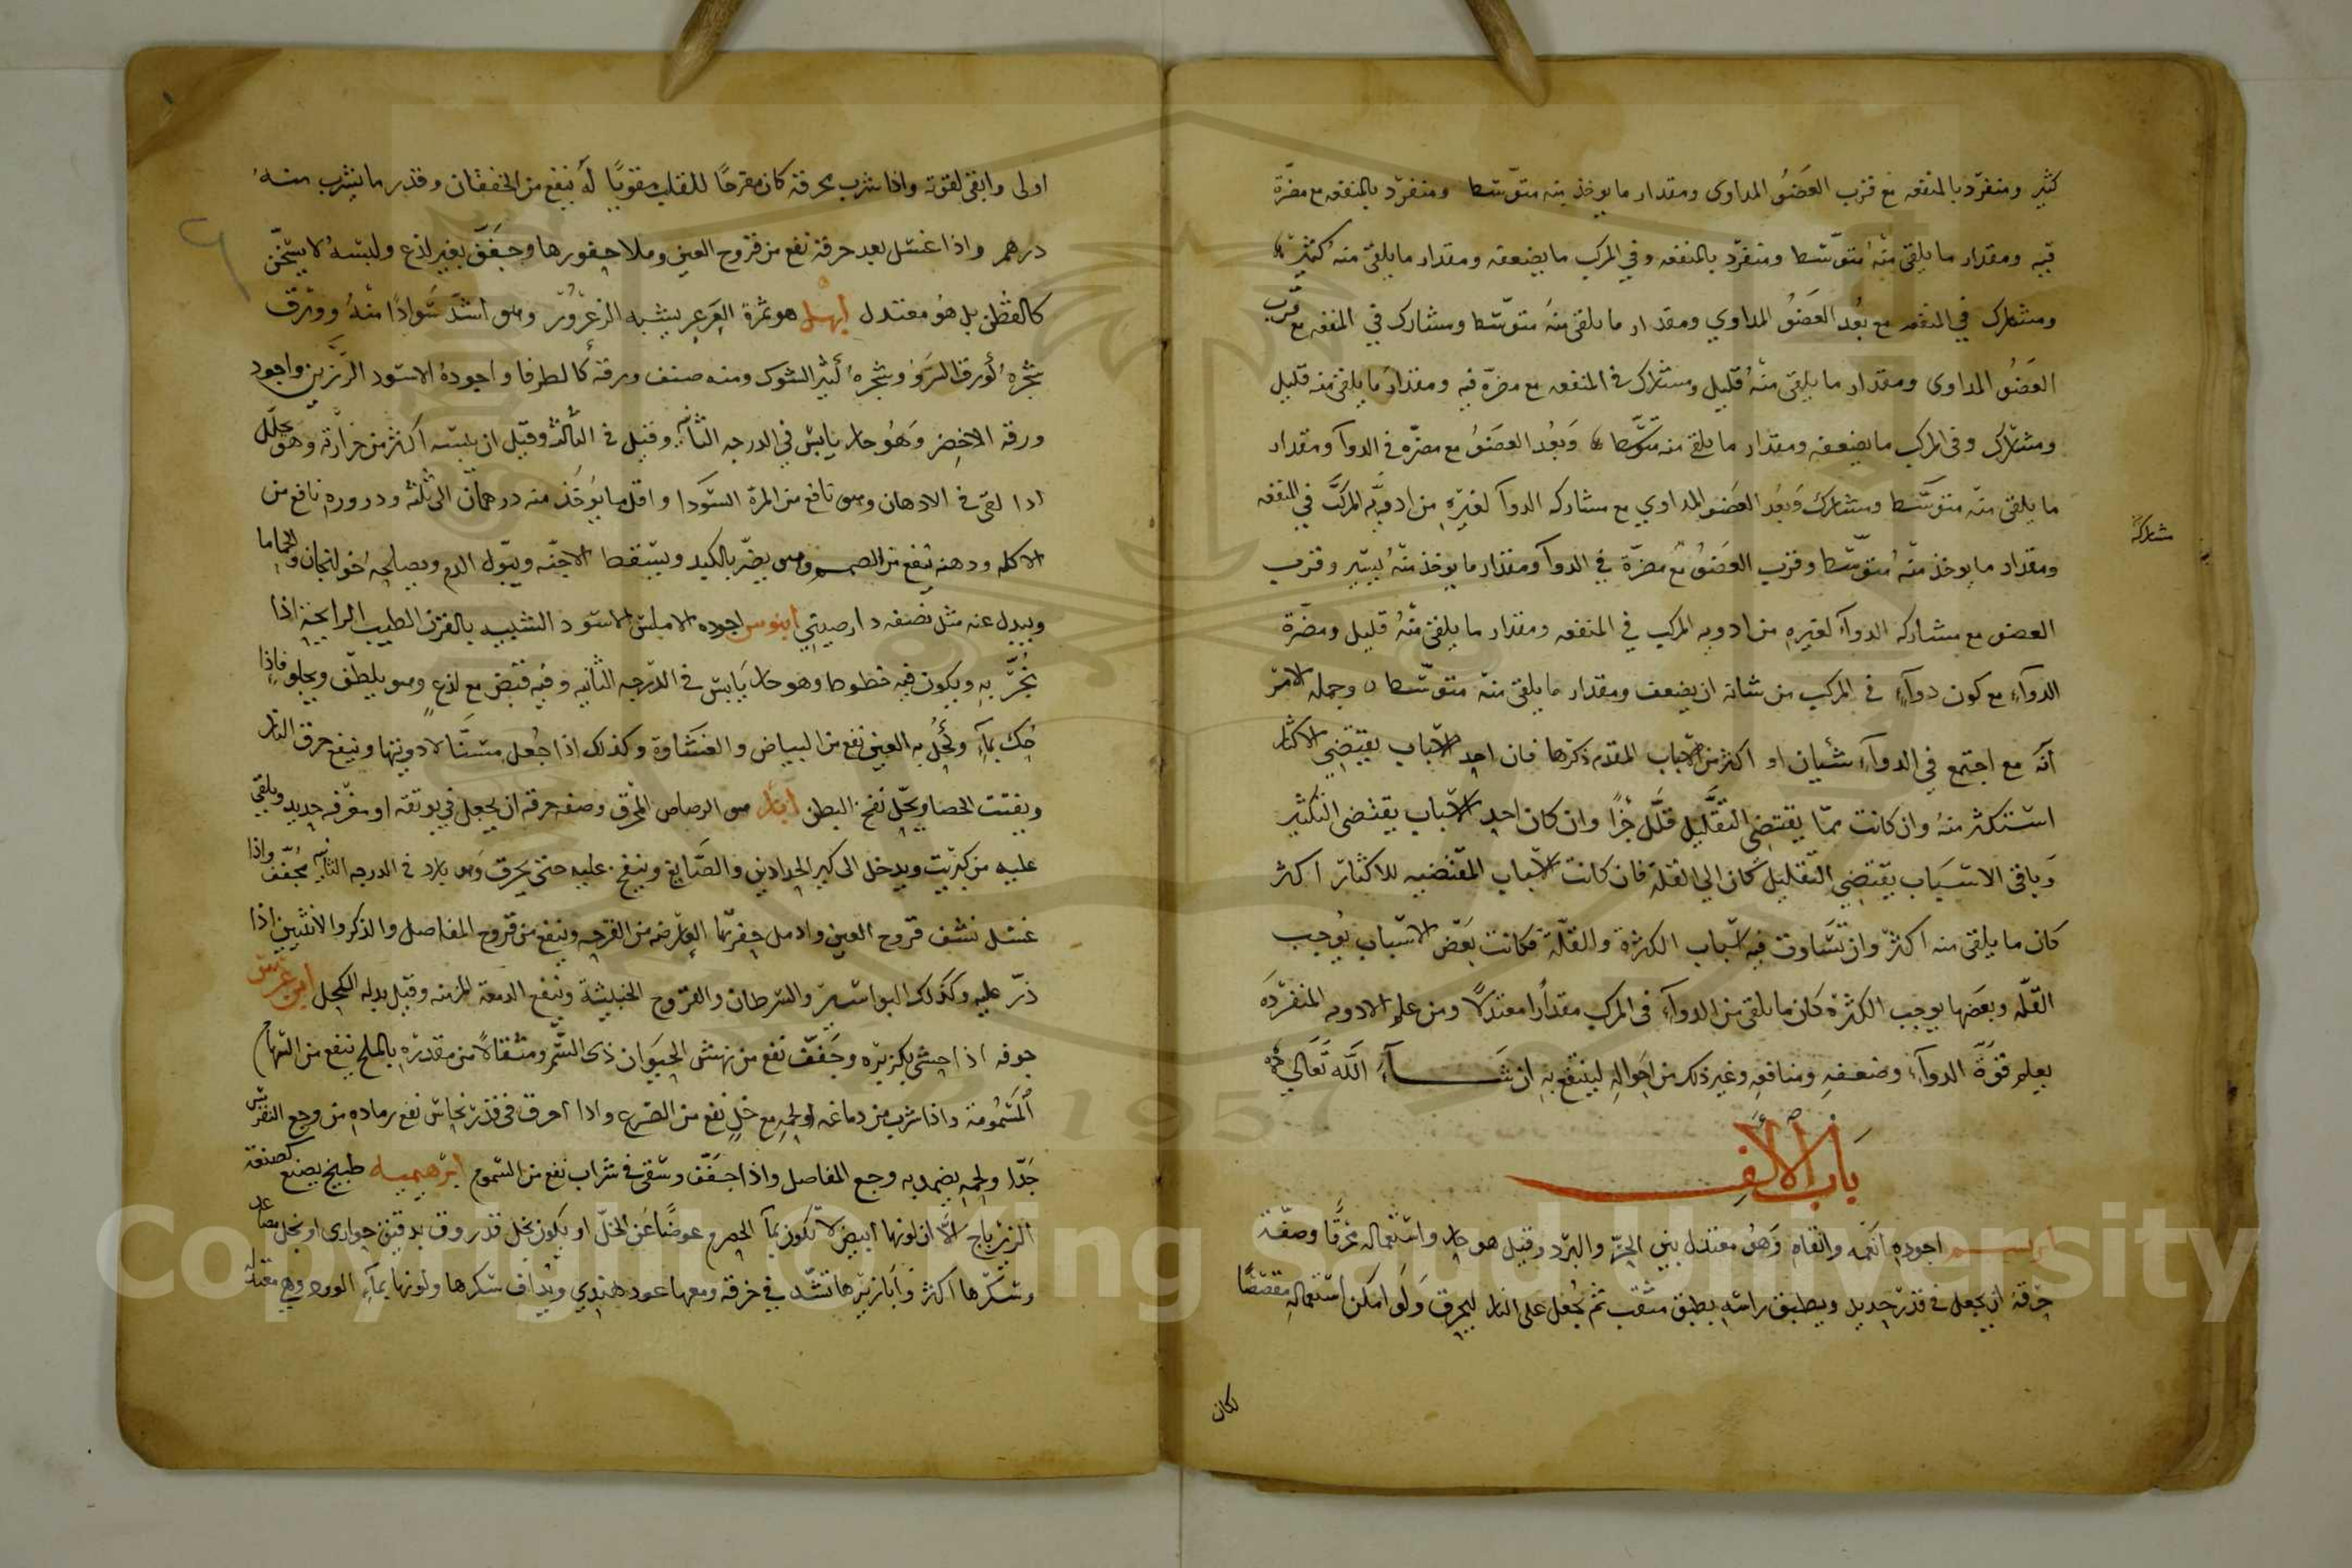 كثير ومنفرد بالمنفعه مع قرب العضو المداوى ومقدار ما يوخذ منه متوسّطا ومنفرد بالمنفعه مع مضرّة
فيه ومقدار ما يلقى منه متوسّطا ومنفرد بالمنفعه وفي المركب ما يضعفه ومقدار ما يلقى منه كثير
ومشارك في المنفعه مع بُعد العضو المداوي ومقدار ما يلقى منه متوسّطا ومشارك في المنفعه مع قرب
العضو المداوى ومقدار ما يلقى منه قليل ومشارك في المنفعه مع مضرّة فيه ومقدار ما يلقى منه قليل
ومشارك وفى المركب ما يضعفه ومقدار ما يلقى منه متوسّطا وبُعد العضو مع مضرّه في الدوآ ومقدار
ما يلقى منه متوسّطا ومشارك وبعد العضو المداوي مع مشاركه الدوآ لغيره من ادويه المركب في المنفعه
مشاركه
ومقدار ما يوخذ منه متوسّطا وقرب العضو مع مضرّة في الدوآ ومقدار ما يوخذ منه يسير وقرب
العضو مع مشاركه الدوآء لغيره من ادويه المركب في المنفعه ومقدار ما يلقى منه قليل ومضرّة
الدوآء مع كون دوآء في المركب من شانه ان يضعف ومقدار ما يلقى منه متوسّطا وجمله الامر
انّه مع اجتمع في الدوآء شيان او اكثر من الاسباب المقدم ذكرها فان احد الاسباب يقتضي الاكثار
استكثر منه وان كانت ممّا يقتضي التقليل قلّل جزًا وان كان احد الاسباب يقتضى التكثير
وباقى الاسباب يقتضي التقليل كان الي القله فان كانت الاسباب المقتضيه للاكثار اكثر
كان ما يلقى منه اكثر وان تساوت فيه اسباب الكثرة والقلّة فكانت بعض الاسباب يوجب
القلّه وبعضها يوجب الكثرة كان ما يلقى من الدوآء في المركب مقدارا معتدلًا ومن علم الادويه المنفرده
يعلم قوّة الدوآء وضعفه ومنافعه وغير ذلك من احواله لينتفع به ان شآء الله تعالي
باب الالف
ابريسم اجوده انعمه وانقاه وهو معتدل بين الحرّ والبرد وقيل هو حار واستعماله محرقًا وصفة
حرقه ان يجعل في قدر جديد ويطبق راسه بطبق مثقب ثم يجعل على النار ليحرق ولو امكن استعماله مقصصًا
لكان
اولى وابقى لقوته واذا شرب بحرقة كان مفرحًا للقلب مقويًا له ينفع من الخفقان وقدر ما يشرب منه
درهم واذا غسل بعد حرقه نفع من قروح العين وملا حفورها وجفف بغير لذع ولبسه لا يسخّن
كالقطن بل هو معتدل ابهل هو ثمرة العرعر يشبه الزعرور وهو اشدّ سوادًا منه وورق
شجره كورق السرو وشجره كثير الشوك ومنه صنف ورقه كالطرفا واجوده الاسود الرزين واجود
ورقه الاخضر وهو حار يابس في الدرجه الثانيه وقيل في الثالثة وقيل ان يبسه اكثر من حرارته وهو يحلّل
اذا لقى في الادهان وهو نافع من المرة السودا واقل ما يوخذ منه درهمان الى ثلثه ودروره نافع من
الاكله ودهنه ينفع من الصمم وهو يضرّ بالكبد ويسقط الاجنّه ويبوّل الدم ويصلحه خولنجان والحماما
ويبدل عنه مثل نصفه دارصيني ابنوس اجوده الاملس الاسود الشبيه بالقرن الطيب الرايحة اذا
بُخّر به ويكون فيه خطوط وهو حار يابس في الدرجه الثانيه وفيه قبض مع لذع وهو يلطّف ويجلو فاذا
حك بمآء وكحّل به العين نفع من البياض والغشاوة وكذلك اذا جُعل مسنًّا لادويتها وينفع حرق النار
ويفتت الحصا ويحلّ نفخ البطن ابار هو الرصاص المحرق وصفه حرقه ان يجعل في بوتقه او مغرفه جديد ويلقى
عليه من كبريت ويدخل الى كير الحدادين والصّايغ وينفخ عليه حتى يحرق وهو بارد في الدرجه الثانيه مجفّف واذا
غسل نشف قروح العين وادمل حفرها العارضه من القرحه وينفع من قروح المفاصل والذكر والانثيين اذا
ذرّ عليه وكذلك البواسير والسّرطان والقروح الخبيثة وينفع الدمعة المزمنه وقيل بدله الكحل ابن عرس
جوفه اذا حشى بكزبره وجفّف نفع من نهش الحيوان ذى السّم ومثقالًا من مقدده بالملح ينفع من السهام
المسمومة واذا شرب من دماغه او لحمه مع خل نفع من الصرع واذا احرق في قدر نحاس نفع رماده من وجع النقرس
جدّا ولحمه يضمد به وجع المفاصل واذا جفف وسقى في شراب نفع من السموم ابرهيميه طبيخ يصنع كصنعة
الزيرباج الّا ان لونها ابيض لا تكون بمآ الحصرم عوضًا عن الخلّ او يكون بخل قد روق بدقيق حوارى او بخل مصاعد
وسكرها اكثر وابازيرها تشد في خرقة ومعها عود هندي ويداف سكرها ولوزها بمآء الورد وهي معتدله